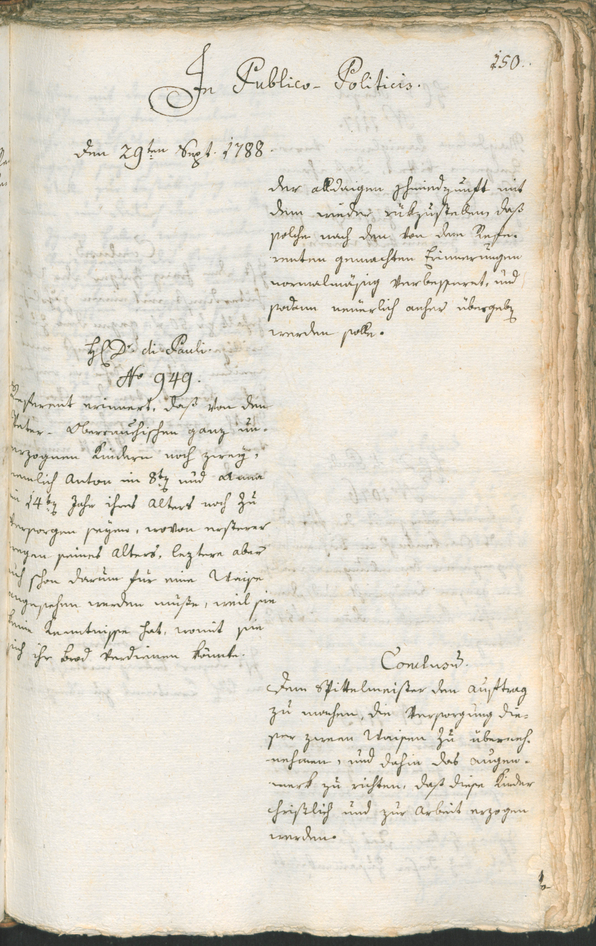 150.
In Publico-Politicis.
den 29ten Sept. 1788.
der alldaigen Schmiedzunft mit
dem wieder rükzustellen, daß
solche nach den von dem Refe-
renten gemachten Erinnerungen
normalmäsig verbesseret, und
sodann neuerlich anher übergeben
werden solle.
H D: di Pauli.
No 949.
Referent erinnert, daß von den
Pater- Oberrauchischen ganz un-
erzognen Kindern noch zwey,
nemlich Anton im 8ten und Anna
im 14ten Jahr ihres Alters noch zu
versorgen seyen, wovon ersterer
wegen seines Alters, leztere aber
auch schon darum für eine Waise
angesehen werden müße, weil sie
keine Kenntnisse hat, womit sie
sich ihr Brod verdienen könnte.
Conclusum.
Dem Spittelmeister den Auftrag
zu machen, die Versorgung die-
ser zween Waisen zu überneh-
nehmen, und dahin das Augen-
merk zu richten, daß diese Kinder
christlich und zur Arbeit erzogen
werden.